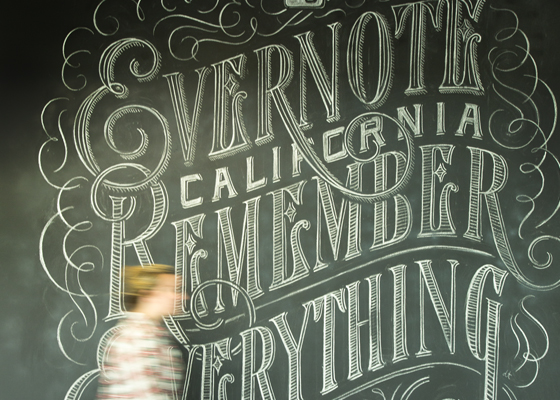 EVERNOTE
CALIFORNIA
REMEMBER
EVERYTHING